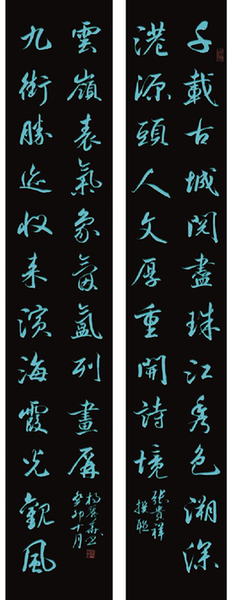 千載古城閱盡珠江秀色溯深
港源頭人文厚重開詩境
張貴祥
撰聯
九衢勝迹收来濱海霞光觀風
雲嶺表氣象氤氲列畫屏
癸卯十月